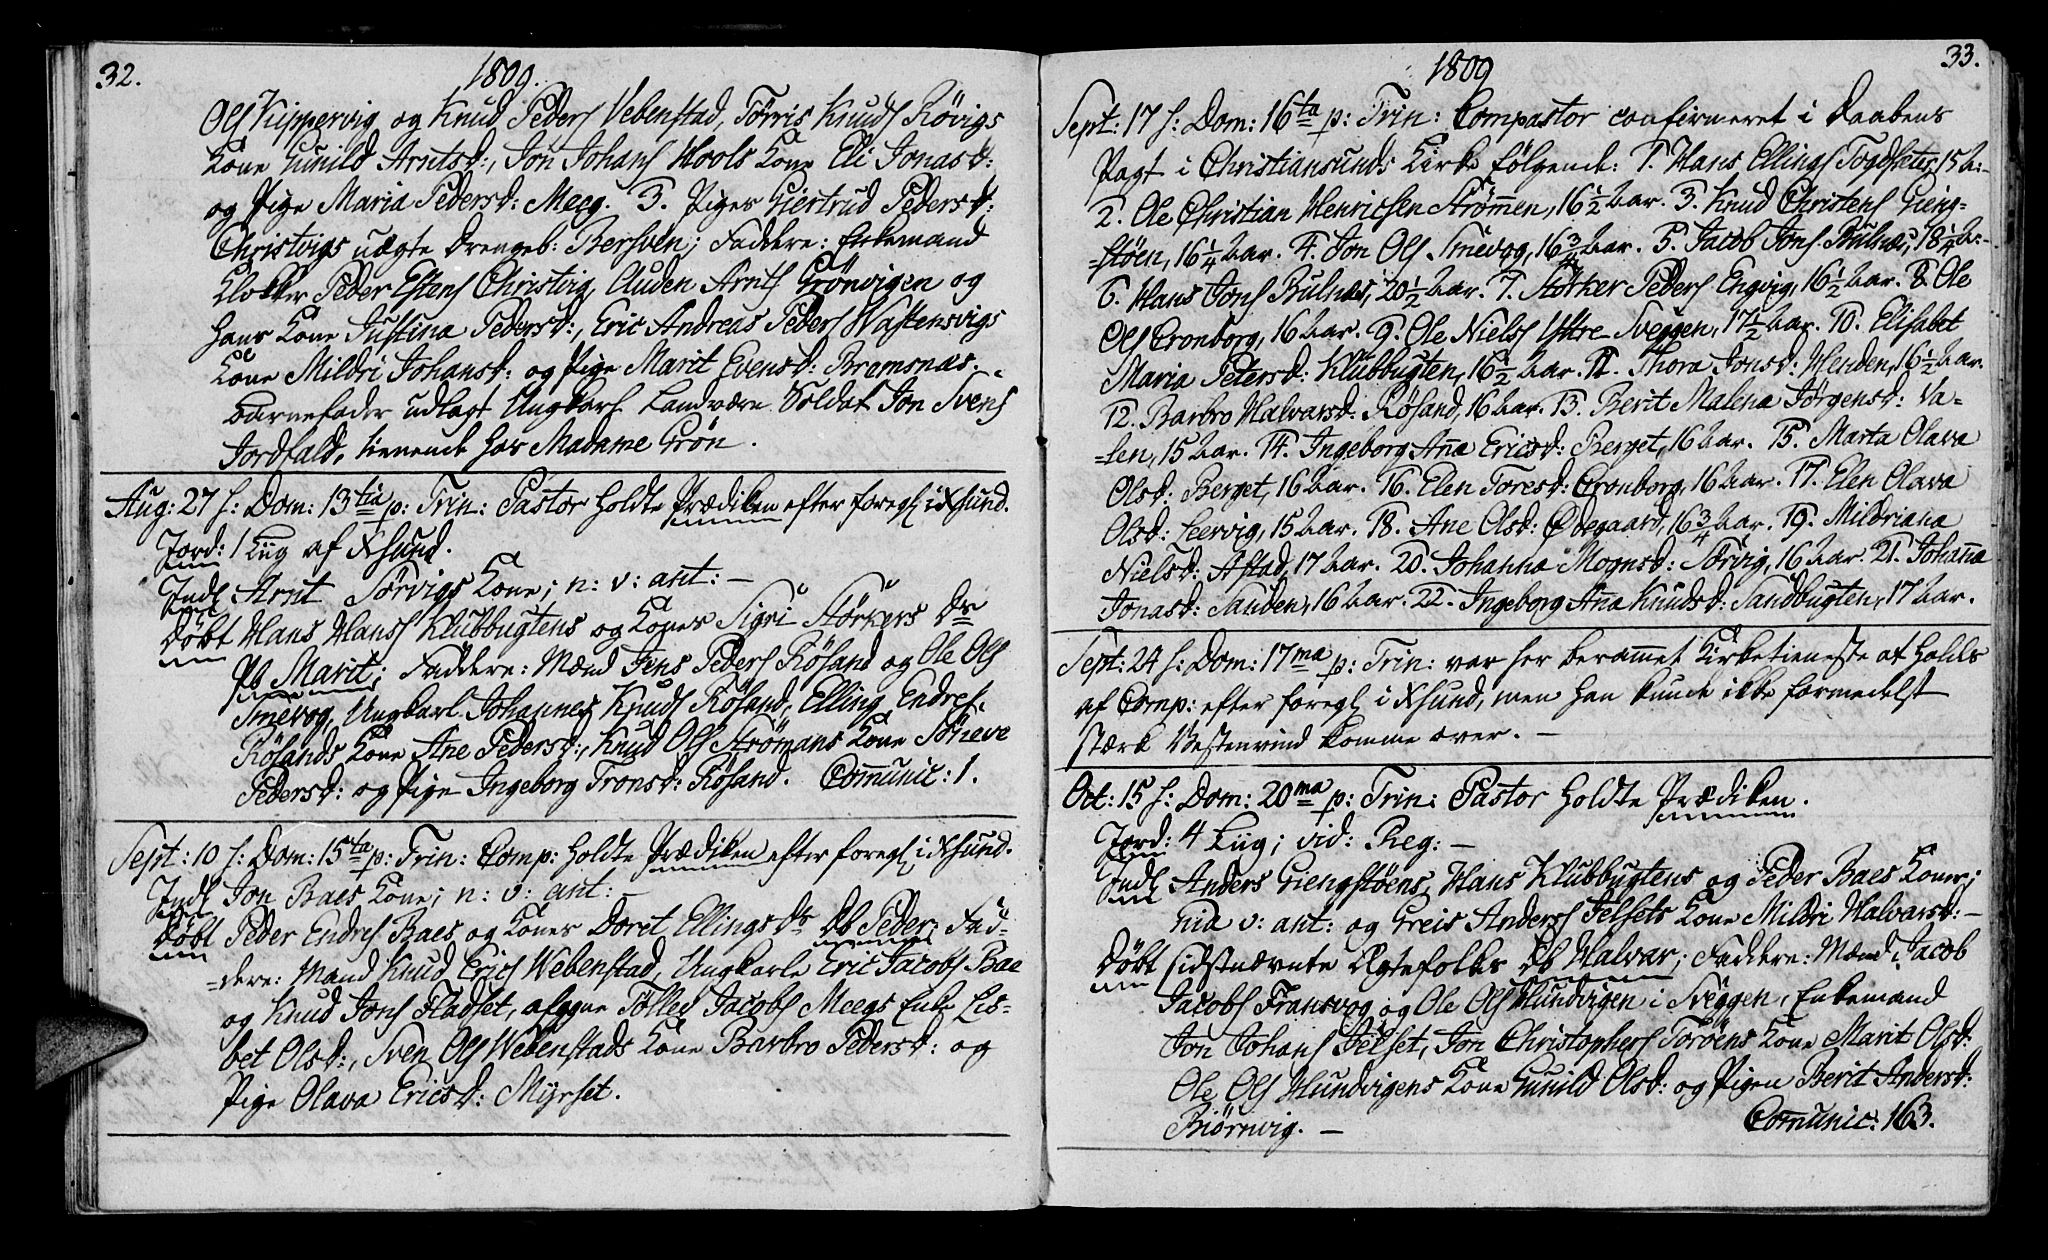 32.
1809.
Ols Kippervig og Knud Peders Vebenstad, Törris Knuds Rövigs
Kone Gunild Arntsd:, Jon Johans Hools Kone Eli Jonasd:
og Pige Maria Pedersd: Meeg. 3. Piges Giertrud Pedersd:
Christvigs uægte Drengeb: Bersven; Faddere: Enkemand
Klokker Peder Estens Christvig, Auden Arnts Grönvigen og
hans Kone Justina Pedersd:, Eric Andreas Peders Wastensvigs
Kone Mildri Johansd: og Pige Marit Evensd: Bremsnæs.
Barnefader udlagt Ungkarl Landværn Soldat Jon Svens
Jordfald, tienende hos Madame Grön.
Aug: 27 h: Dom: 13tia p: Trin: Pastor holdte Prædiken efter foregl i Xsund.
Jord: 1 Liig af Xsund.
Indl Arnt Sörvigs Kone; n: v: ant: –
Döbt Hans Hanss Klubbugtens og Kones Sigri Störkers Dr
Pb Marit; Faddere: Mænd Jens Peders Rösand og Ole Ols
Smevog, Ungkarl Johannes Knuds Rösand, Elling Endres
Rösands Kone Ane Pedersd:, Knud Ols Strömans Kone Söneve
Pedersd: og Pige Ingeborg Tronsd: Rösand. Comunic: 1.
Sept: 10 h: Dom: 15ta p: Trin: Comp: holdte Prædiken efter foregl i Xsund.
Indl Jon Baes Kone; n: v: ant: –
Döbt Peder Endres Baes og Kones Doret Ellings Dr Db Peder; Fad-
dere: Mand Knud Erics Webenstad, Ungkarle Eric Jacobs Bae
og Knud Jons Fladset, afgagne Tollev Jacobs Meegs Enke Lis-
bet Olsd:, Sven Ols Webenstads Kone Barbro Pedersd: og
Pige Olava Ericsd: Myrset.
33.
1809
Sept: 17 h: Dom: 16ta p: Trin: Compastor confirmeret i Daabens
Pagt i Christiansunds Kirke fölgende: 1. Hans Ellings Togdsæter, 15 A:
2. Ole Christian Henricsen Strömmen, 16 1/2 Aar. 3. Knud Christens Gieng-
stöen, 16 1/4 Aar. 4. Jon Ols Smevog, 16 3/4 Aar. 5. Jacob Jons Bulnæs, 18 1/4 A:
6. Hans Jons Bulnæs, 20 1/2 Aar. 7. Störker Peders Engvig, 16 1/2 Aar. 8. Ole
Ols Cronborg, 16 Aar. 9. Ole Niels Ystre-Sveggen, 17 1/2 Aar. 10. Elisabet
Maria Petersd: Klubbugten, 16 1/2 Aar. 11. Thora Jonsd: Henden, 16 1/2 Aar.
12. Barbro Halvarsd: Rösand, 16 Aar. 13. Berit Malena Jörgensd: Va-
len, 15 Aar. 14. Ingeborg Ana Ericsd: Berget, 16 Aar. 15. Marta Olava
Olsd: Berget, 16 Aar. 16. Elen Toresd: Cronborg, 16 Aar. 17. Elen Olava
Olsd: Leervig, 15 Aar. 18. Ane Olsd: Ödegaard, 16 3/4 Aar. 19. Mildriana
Nielsd: Astad, 17 Aar. 20. Johanna Mognsd: Sörvig, 16 Aar. 21. Johanna
Jonasd: Sauden, 16 Aar. 22. Ingeborg Ana Knudsd: Sandbugten, 17 Aar.
Sept: 24 h: Dom: 17ma p: Trin: var her beramet Kirketieneste at holds
af Comp: efter foregl i Xsund, men han kunde ikke formedelst
stærk Vestenvind komme over. –
Oct: 15 h: Dom: 20ma p: Trin: Pastor holdte Prædiken.
Jord: 4 Liig; vid: Reg: –
Indl Anders Giengstöens, Hans Klubbugtens og Peder Baes Koner;
nia v: ant: og Greis Anderss Jelsets Kone Mildri Halvarsd: –
Döbt sidstnævnte Ægtefolks Db Halvar; Faddere: Mænd Jacob
Jacobs Fransvog og Ole Ols Hundvigen i Sveggen, Enkemand
Jon Johans Jelset, Jon Christophers Toröens Kone Marit Olsd:
Ole Ols Hundvigens Kone Gunild Olsd: og Pigen Berit Andersd:
Biörnvig. –
Comunic: 163.